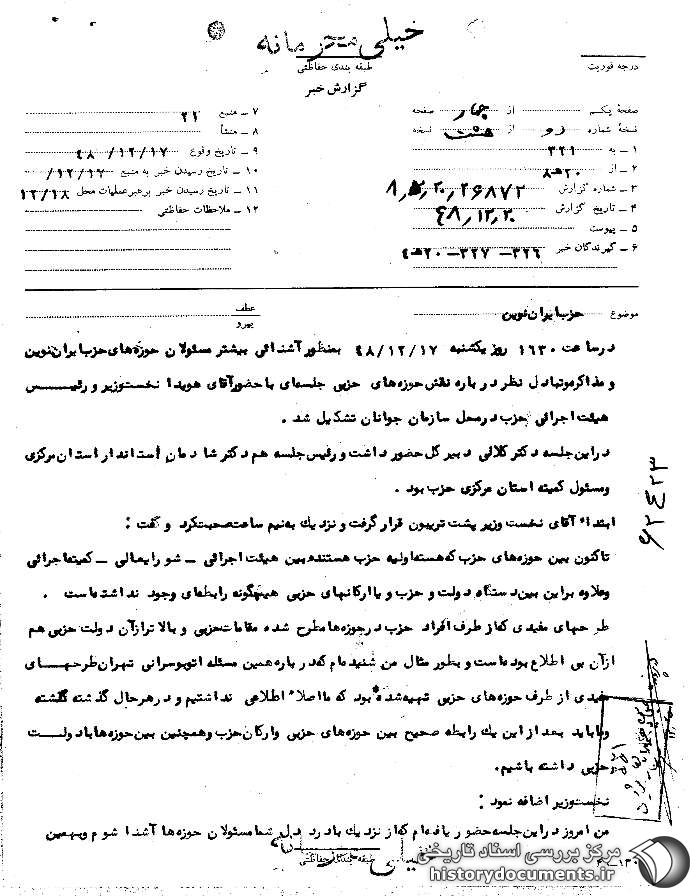 خیلی محرمانه
طبقه بندی حفاظتی
درجه فوریت
گزارش خبر
صفحهٔ یکم از چهار صفحه
نسخهٔ شماره دو از هشت نسخه
۱ ــ به ۳۲۱
۲ ــ از ۲۰ هـ ۸
۳ ــ شماره گزارش
۴ ــ تاریخ گزارش ۴۸٫۱۲٫۲۰
۵ ــ پیوست
۶ ــ گیرندگان خبر ۳۲۶ــ ۳۲۷ــ ۲۰ هـ ۴
۷ ــ منبع ۲۱
۸ ــ منشأ
۹ ــ تاریخ وقوع ۴۸/۱۲/۱۷
۱۰ ــ تاریخ رسیدن خبر به منبع ۱۲/۱۷/
۱۱ ــ تاریخ رسیدن خبر برهبر عملیات محل ۱۲/۱۸
۱۲ ــ ملاحظات حفاظتی
موضوع حزب ایران نوین
عطف
پیرو
در ساعت ۱۶۳۰ روز یکشنبه ۴۸/۱۲/۱۷ بمنظور آشنائی بیشتر مسئولان حوزه های حزب ایران نوین
و مذاکره و تبادل نظر درباره نقش حوزه های حزبی جلسه ای با حضور آقای هویدا نخست وزیر و رئیس
هیئت اجرائی حزب در محل سازمان جوانان تشکیل شد .
در این جلسه دکتر کلالی دبیر کل حضور داشت و رئیس جلسه هم دکتر شادمان استاندار استان مرکزی
و مسئول کمیته استان مرکزی حزب بود .
ابتداء آقای نخست وزیر پشت تریبون قرار گرفت و نزدیک به نیم ساعت صحبت کرد و گفت :
تاکنون بین حوزه های حزب که هسته اولیه حزب هستند و بین هیئت اجرائی ــ شورایعالی ــ کمیته اجرائی
وعلاوه براین بین دستگاه دولت و حزب و یا ارگانهای حزبی هیچگونه رابطه ای وجود نداشته است .
طرحهای مفیدی که از طرف افراد حزب در حوزه ها مطرح شده مقامات حزبی و بالاتر از آن دولت حزبی هم
از آن بی اطلاع بوده است و بطور مثال من شنیده ام که درباره همین مسئله اتوبوسرانی تهران طرحهای
مفیدی از طرف حوزه های حزبی تهیه شده بود که ما اصلاً اطلاعی نداشتیم و در هر حال گذشته گذشته
وما باید بعد از این یک رابطه صحیح بین حوزه های حزبی وارکان حزب وهمچنین بین حوزه ها با دولت
حزبی داشته باشیم.
نخست وزیر اضافه نمود :
من امروز در این جلسه حضور یافته ام که از نزدیک با درد دل شما مسئولان حوزه ها آشنا شوم و بهمین
طبقه بندی حفاظتی
۶۲۴۲۳
مرکز بررسی اسناد تاریخی
historydocuments.ir